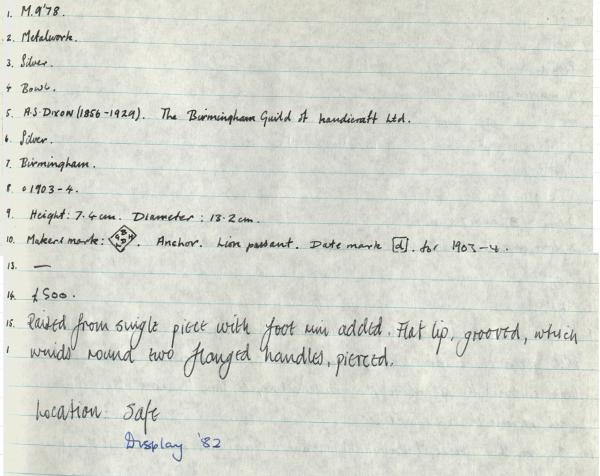 1. M.9'78.
2. Metalwork.
3. Silver.
4 Bowl.
5. A.S. Dixon (1856-1929). The Birmingham Guild of handicraft Ltd.
6. Silver.
7. Birmingham.
8. 1903-4.
9. Height: 7.4cm. Diameter: 13.2cm.
10. Makers mark: . Anchor. Lion passant. Date mark [d]. for 1903-4.
13. —
14. £500.
15. Raised from single piece with foot rim added. Flat lip, grooved, which
1 winds round two flanged handles, pierced.
Location: Safe
Display '82